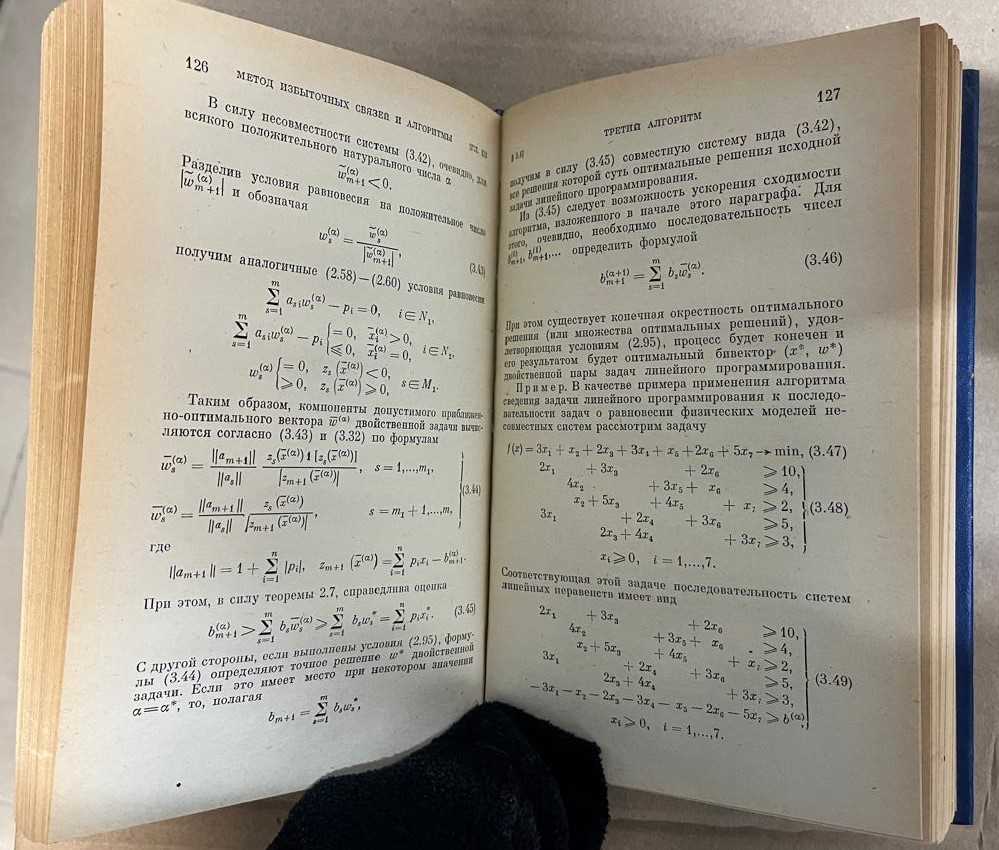 126 МЕТОД ИЗБЫТОЧНЫХ СВЯЗЕЙ И АЛГОРИТМЫ
В силу несовместности системы (3.42), очевидно, для
всякого положительного натурального числа α
w̃_{m+1}^{(α)} < 0.
Разделив условия равновесия на положительное число
|w̃_{m+1}^{(α)}| и обозначая
w_s^{(α)} = w̃_s^{(α)} / |w̃_{m+1}^{(α)}|, (3.43)
получим аналогичные (2.58)—(2.60) условия равновесия
∑_{s=1}^{m} a_{si} w_s^{(α)} − p_i = 0, i ∈ N_1,
∑_{s=1}^{m} a_{si} w_s^{(α)} − p_i { = 0, x̄_i^{(α)} > 0,
⩽ 0, x̄_i^{(α)} = 0, i ∈ N_1,
w_s^{(α)} { = 0, z_s (x̄^{(α)}) < 0,
⩾ 0, z_s (x̄^{(α)}) ⩾ 0, s ∈ M_1.
Таким образом, компоненты допустимого приближен-
но-оптимального вектора w̄^{(α)} двойственной задачи вычис-
ляются согласно (3.43) и (3.32) по формулам
w̄_s^{(α)} = ||a_{m+1}|| / ||a_s|| · z_s(x̄^{(α)}) 1 [z_s(x̄^{(α)})] / |z_{m+1}(x̄^{(α)})|, s = 1,...,m_1,
(3.44)
w̄_s^{(α)} = ||a_{m+1}|| / ||a_s|| · z_s(x̄^{(α)}) / |z_{m+1}(x̄^{(α)})|, s = m_1 + 1,...,m,
где
||a_{m+1}|| = 1 + ∑_{i=1}^{n} |p_i|, z_{m+1} (x̄^{(α)}) = ∑_{i=1}^{n} p_i x_i − b_{m+1}^{(α)}.
При этом, в силу теоремы 2.7, справедлива оценка
b_{m+1}^{(α)} > ∑_{s=1}^{m} b_s w̄_s^{(α)} ⩾ ∑_{s=1}^{m} b_s w_s^* = ∑_{i=1}^{n} p_i x_i^*. (3.45)
С другой стороны, если выполнены условия (2.95), форму-
лы (3.44) определяют точное решение w* двойственной
задачи. Если это имеет место при некотором значении
α = α*, то, полагая
b_{m+1} = ∑_{s=1}^{m} b_s w_s^*,
ТРЕТИЙ АЛГОРИТМ 127
получим в силу (3.45) совместную систему вида (3.42),
все решения которой суть оптимальные решения исходной
задачи линейного программирования.
Из (3.45) следует возможность ускорения сходимости
алгоритма, изложенного в начале этого параграфа. Для
этого, очевидно, необходимо последовательность чисел
b_{m+1}, b_{m+1}^{(1)},... определить формулой
b_{m+1}^{(α+1)} = ∑_{s=1}^{m} b_s w̄_s^{(α)}. (3.46)
При этом существует конечная окрестность оптимального
решения (или множества оптимальных решений), удов-
летворяющая условиям (2.95), процесс будет конечен и
его результатом будет оптимальный бивектор (x*, w*)
двойственной пары задач линейного программирования.
Пример. В качестве примера применения алгоритма
сведения задачи линейного программирования к последо-
вательности задач о равновесии физических моделей не-
совместных систем рассмотрим задачу
f(x) = 3x_1 + x_2 + 2x_3 + 3x_4 + x_5 + 2x_6 + 5x_7 → min, (3.47)
2x_1 + 3x_3 + 2x_6 ⩾ 10,
4x_2 + 3x_5 + x_6 ⩾ 4,
x_2 + 5x_3 + 4x_5 + x_7 ⩾ 2, (3.48)
3x_1 + 2x_4 + 3x_6 ⩾ 5,
2x_3 + 4x_4 + 3x_7 ⩾ 3,
x_i ⩾ 0, i = 1,...,7.
Соответствующая этой задаче последовательность систем
линейных неравенств имеет вид
2x_1 + 3x_3 + 2x_6 ⩾ 10,
4x_2 + 3x_5 + x_6 ⩾ 4,
x_2 + 5x_3 + 4x_5 + x_7 ⩾ 2,
3x_1 + 2x_4 + 3x_6 ⩾ 5, (3.49)
2x_3 + 4x_4 + 3x_7 ⩾ 3,
− 3x_1 − x_2 − 2x_3 − 3x_4 − x_5 − 2x_6 − 5x_7 ⩾ b^{(α)},
x_i ⩾ 0, i = 1,...,7.